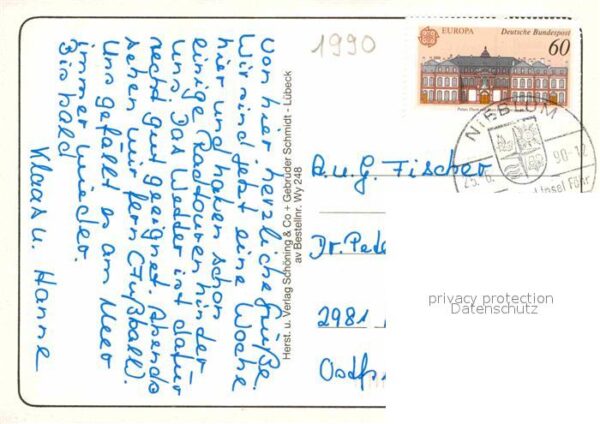 Von hier herzliche Grüße.
Wir sind jetzt eine Woche
hier und haben schon
einige Radtouren hinder
uns. Das Wedder ist dafür
recht gut geeignet. Abends
sehen wir fern (Fußball).
Uns gefällt es am Meer
immer wieder.
Bis bald
Klaas u. Hanne
Herst. u. Verlag Schöning & Co + Gebrüder Schmidt - Lübeck
av Bestellnr. Wy 248
1990
EUROPA Deutsche Bundespost
60
NIEBLUM
25.6. 90-12
Insel Föhr
A. u. G. Fischer
Dr. Pede
2981
Ostf
privacy protection
Datenschutz